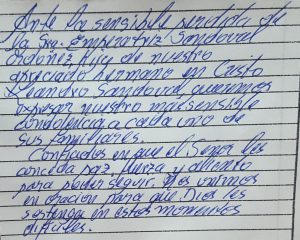 Ante la sensible perdida de
la Sra. Emperatriz Sandoval
Ordoñez, Hija de nuestro
apreciado hermano en Casto
Leandro Sandoval, queremos
expresar nuestro mas sensible
condolencia a cada uno de
sus familiares.
Confiados en que el Señor les
conceda paz, fuerza y aliento
para poder seguir. Nos unimos
en oración para que Dios les
sostenga en estos momentos
difíciles.